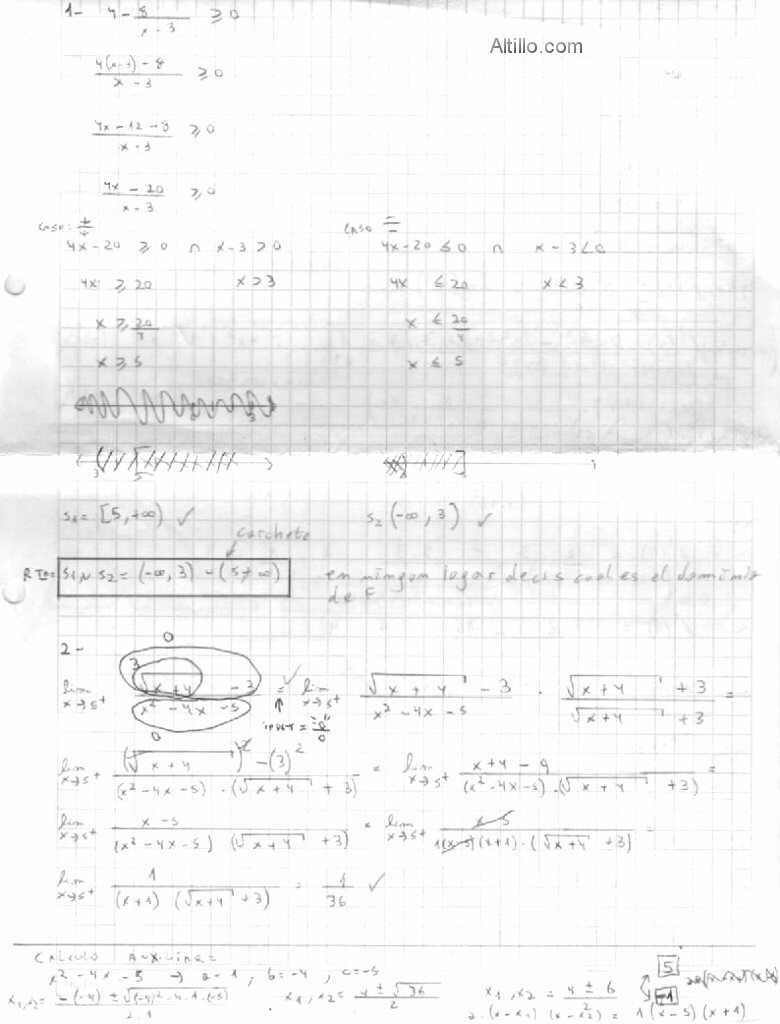 1- 4 - 8/(x-3) ≥ 0
Altillo.com
(4(x-3) - 8)/(x-3) ≥ 0
(4x - 12 - 8)/(x-3) ≥ 0
(4x - 20)/(x-3) ≥ 0
caso: +/+ caso -/-
4x-20 ≥ 0 ∩ x-3 > 0 4x-20 ≤ 0 ∩ x-3 < 0
4x ≥ 20 x > 3 4x ≤ 20 x < 3
x ≥ 20/4 x ≤ 20/4
x ≥ 5 x ≤ 5
3 5 3 5
S1 = [5, +∞) ✓ S2 (-∞, 3) ✓
corchete
RTA= S1 ∪ S2 = (-∞, 3) - (5 + ∞) en ningun lugar decis cual es el dominio
de F
2- 0
3
lim x→5+ (√(x+4) - 3)/(x² - 4x - 5) = ✓ lim x→5+ (√(x+4) - 3)/(x² - 4x - 5) · (√(x+4) + 3)/(√(x+4) + 3) =
0 "0"/0
lim x→5+ ((√(x+4))² - (3)²)/((x² - 4x - 5) · (√(x+4) + 3)) = lim x→5+ (x+4 - 9)/((x² - 4x - 5) · (√(x+4) + 3)) =
lim x→5+ (x-5)/((x² - 4x - 5) (√(x+4) + 3)) = lim x→5+ (x-5)/(1(x-5)(x+1) · (√(x+4) + 3)) =
lim x→5+ 1/((x+1) (√(x+4) + 3)) = 1/36 ✓
Calculo Auxiliar=
x² - 4x - 5 → a=1, b=-4, c=-5
x1, x2 = (-(-4) ± √((-4)² - 4·1·(-5)))/(2·1) x1, x2 = (4 ± √36)/2 x1, x2 = (4 ± 6)/2 5
-1
a·(x-x1) (x-x2) = 1(x-5)(x+1)